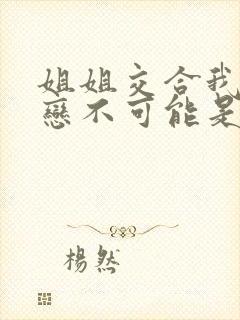 姐姐交合我
戀不可能是
楊然